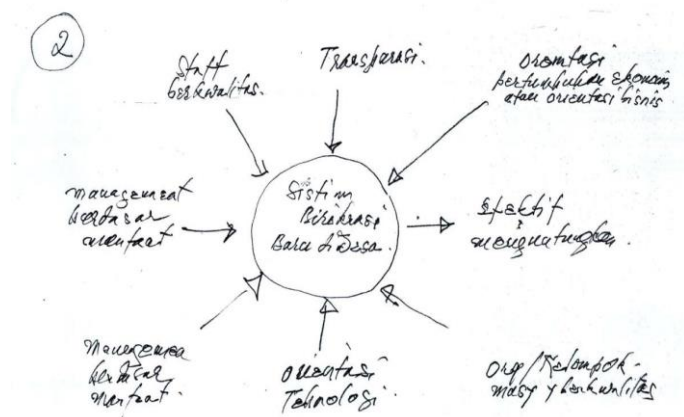 2
Staff
berkwalitas.
Transparasi.
Orientasi
pertumbuhan ekonomi
atau orientasi bisnis
management
berdasar
manfaat
Sistim
Birokrasi
Baru di Desa.
Efektif
menguntungkan.
Managemen
berdasar
manfaat.
orientasi
Teknologi.
Org/Kelompok
masy y berkwalitas